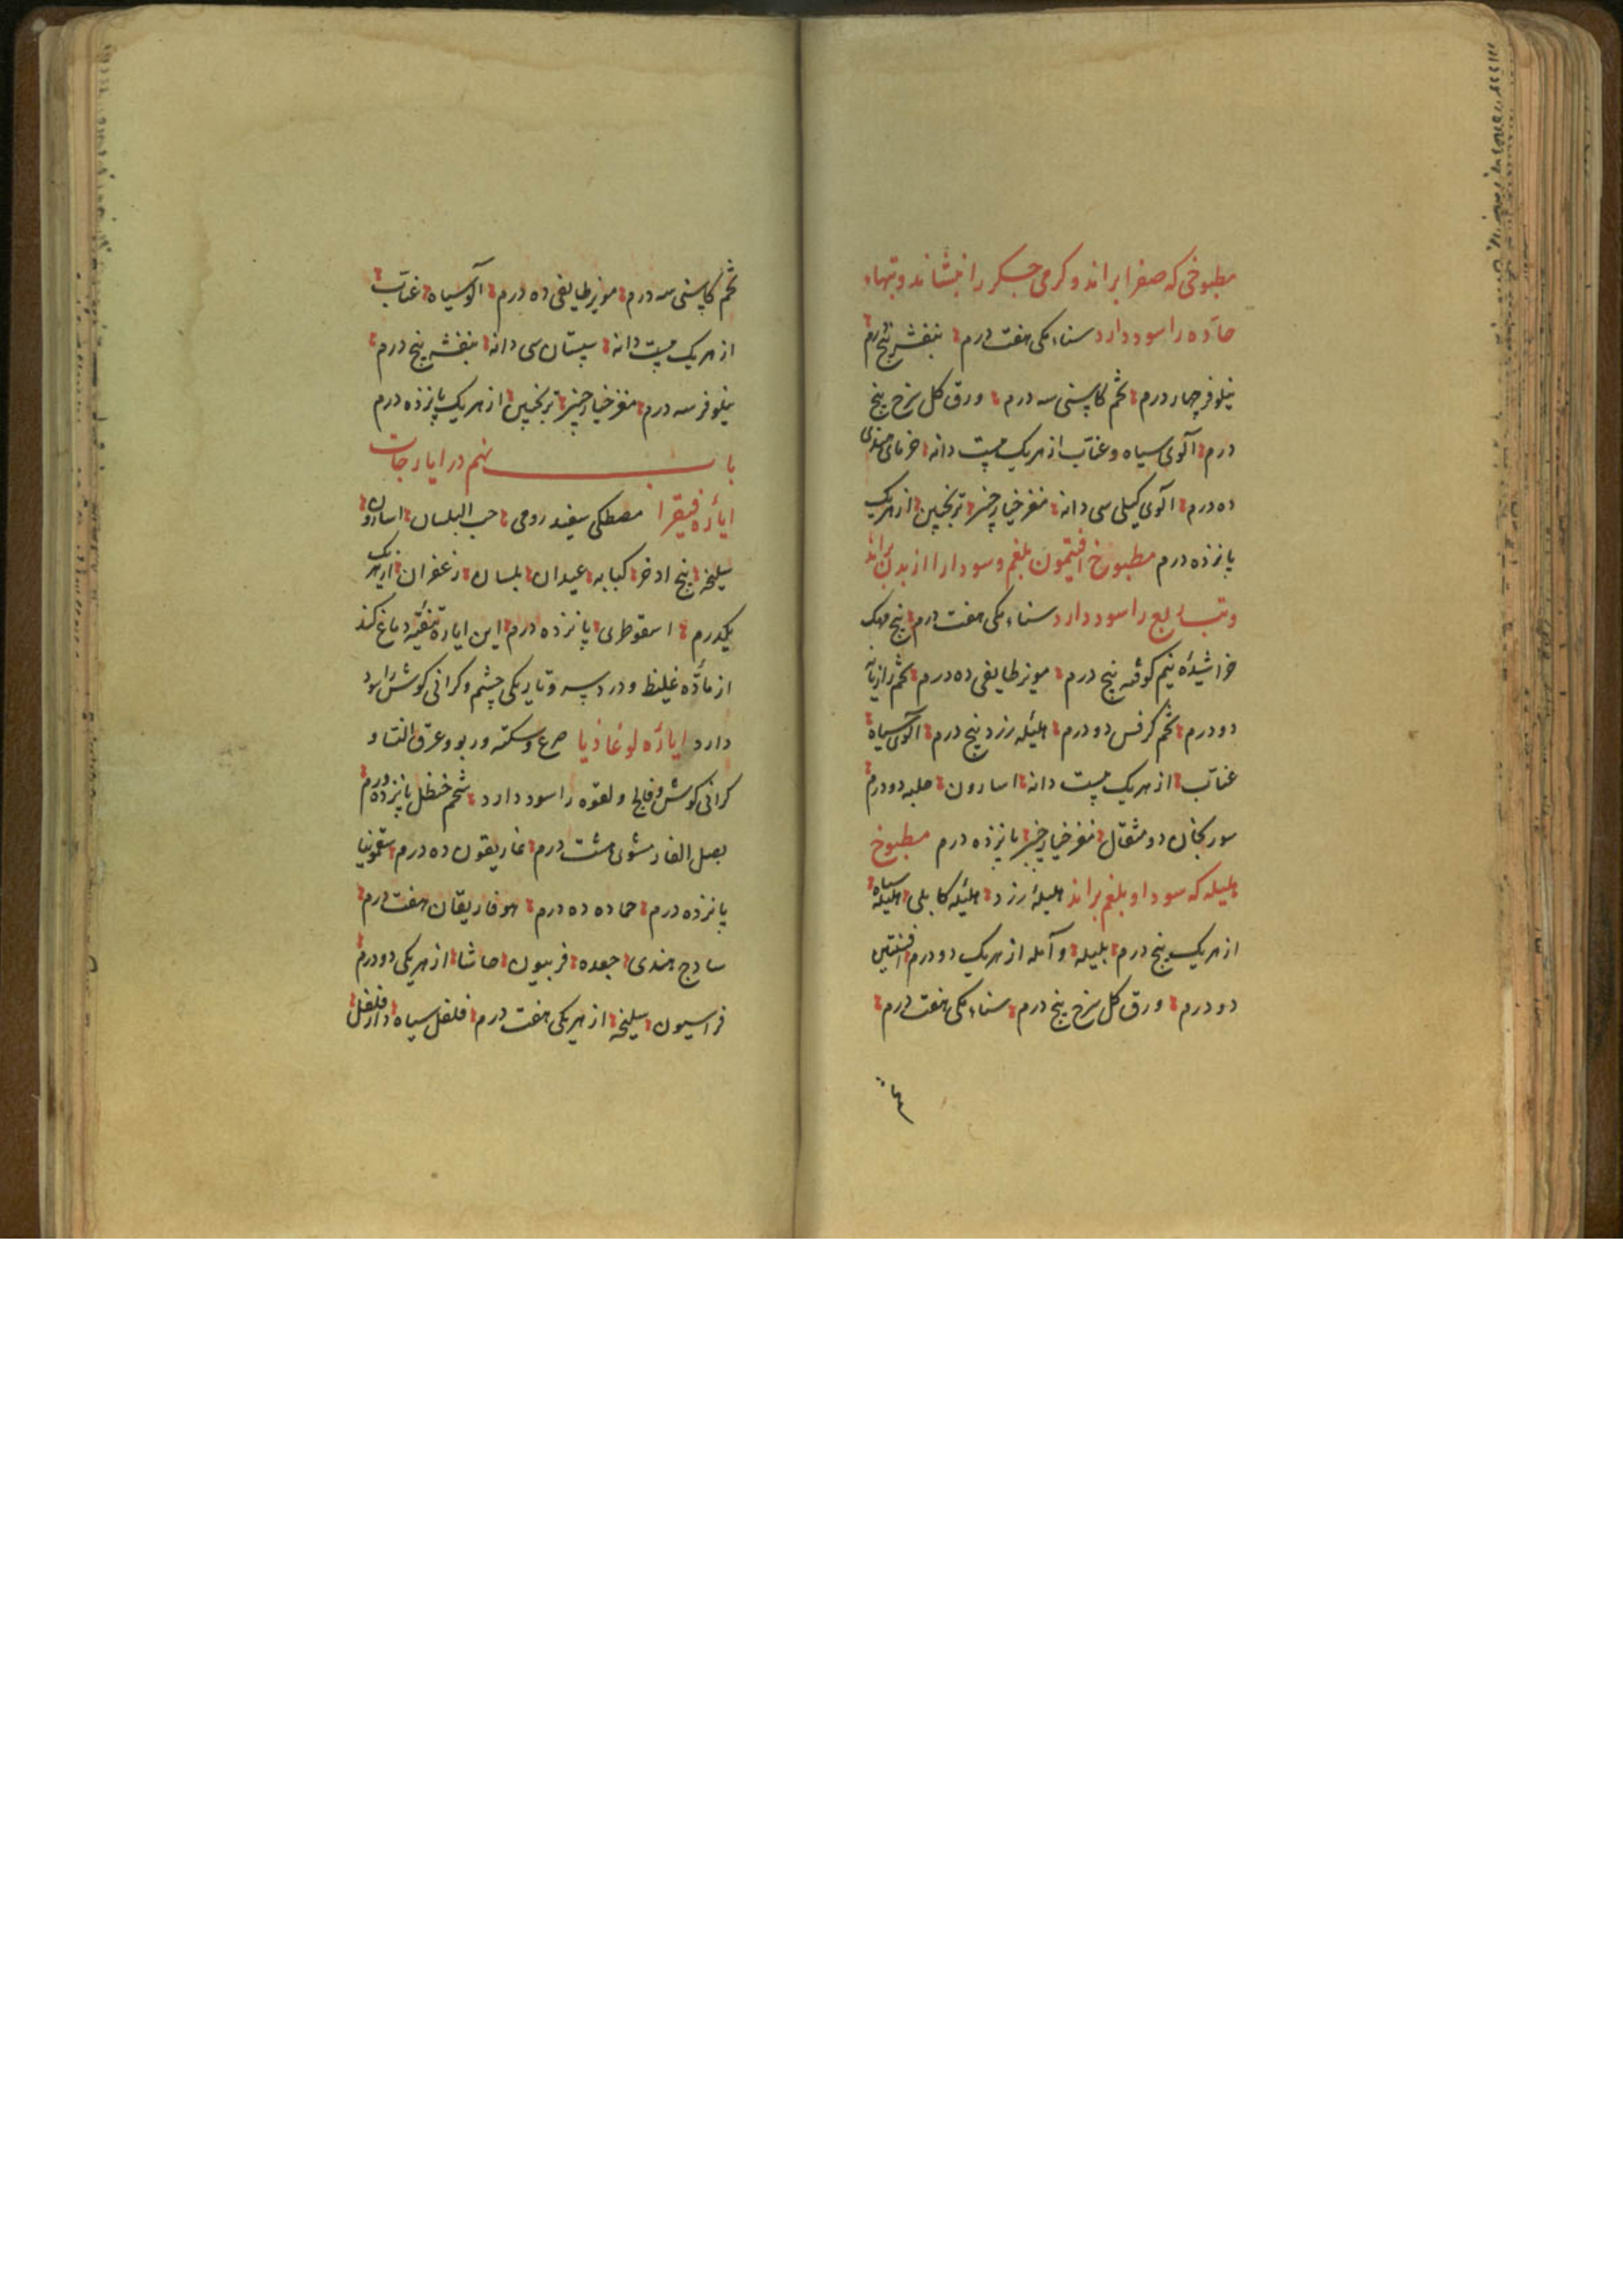 مطبوخی که صفرا براند و کرمی جگر را بنشاند و تبهاء
حاده را سود دارد سناء مکی هفت درم بنفشه پنج درم
نیلوفر چهار درم تخم کاسنی سه درم ورق کل سرخ پنج
درم آلوی سیاه و عناب از هریک بیست دانه خرمای هندی
ده درم آلوی کیلی سی دانه مغز خیار چنبر ترنجبین از هریک
پانزده درم مطبوخ افتیمون بلغم و سودا را از بدن براند
و تب ربع را سود دارد سناء مکی هفت درم بیخ مهک
خراشیده نیم کوفته پنج درم مویز طایفی ده درم تخم رازیانه
دو درم تخم کرفس دو درم هلیله زرد پنج درم آلوی سیاه
عناب از هریک بیست دانه اسارون حلبه دو درم
سورنجان دو مثقال مغز خیار چنبر پانزده درم مطبوخ
هلیله که سودا و بلغم براند هلیله زرد هلیله کابلی هلیله سیاه
از هریک پنج درم بلیله و آمله از هریک دو درم افسنتین
دو درم ورق کل سرخ پنج درم سناء مکی هفت درم
تخم کاسنی سه درم مویز طایفی ده درم آلو سیاه عناب
از هریک بیست دانه سپستان سی دانه بنفشه پنج درم
نیلوفر سه درم مغز خیار چنبر ترنجبین از هریک پانزده درم
باب نهم در ایارجات
ایاره فیقرا مصطکی سفید رومی حب البلسان اسارون
سلیخه بیخ ادخر کبابه عیدان بلسان زعفران از هریک
یکدرم اسقوطری پانزده درم این ایاره تنقیه دماغ کند
از ماده غلیظ و درد سر و تاریکی چشم و کرانی کوش را سود
دارد ایاره لوغاذیا صرع و سکته و ربو و عرق النسا و
کرانی کوش و فالج و لقوه را سود دارد شحم حنظل پانزده درم
بصل الفار مشوی هشت درم غاریقون ده درم سقمونیا
پانزده درم حماده ده درم هوفاریقان هفت درم
سادج هندی جعده فربیون حاشا از هریکی دو درم
فراسیون سلیخه از هریکی هفت درم فلفل سیاه دار فلفل